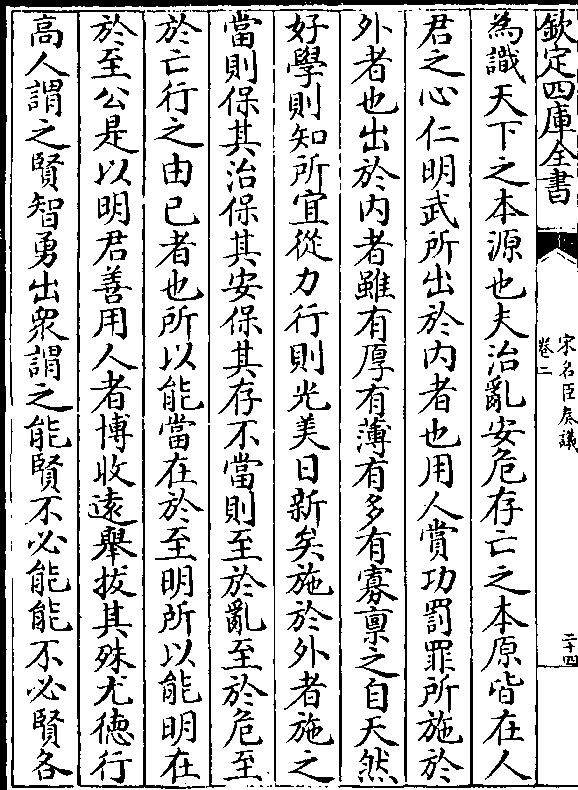 欽定四庫全書
宋名臣奏議
卷二
二十四
為識天下之本源也夫治亂安危存亡之本原皆在人
君之心仁明武所出於内者也用人賞功罰罪所施於
外者也出於内者雖有厚有薄有多有寡禀之自天然
好學則知所宜從力行則光美日新矣施於外者施之
當則保其治保其安保其存不當則至於亂至於危至
於亡行之由已者也所以能當在於至明所以能明在
於至公是以明君善用人者博收逺舉拔其殊尤徳行
高人謂之賢智勇出衆謂之能賢不必能能不必賢各